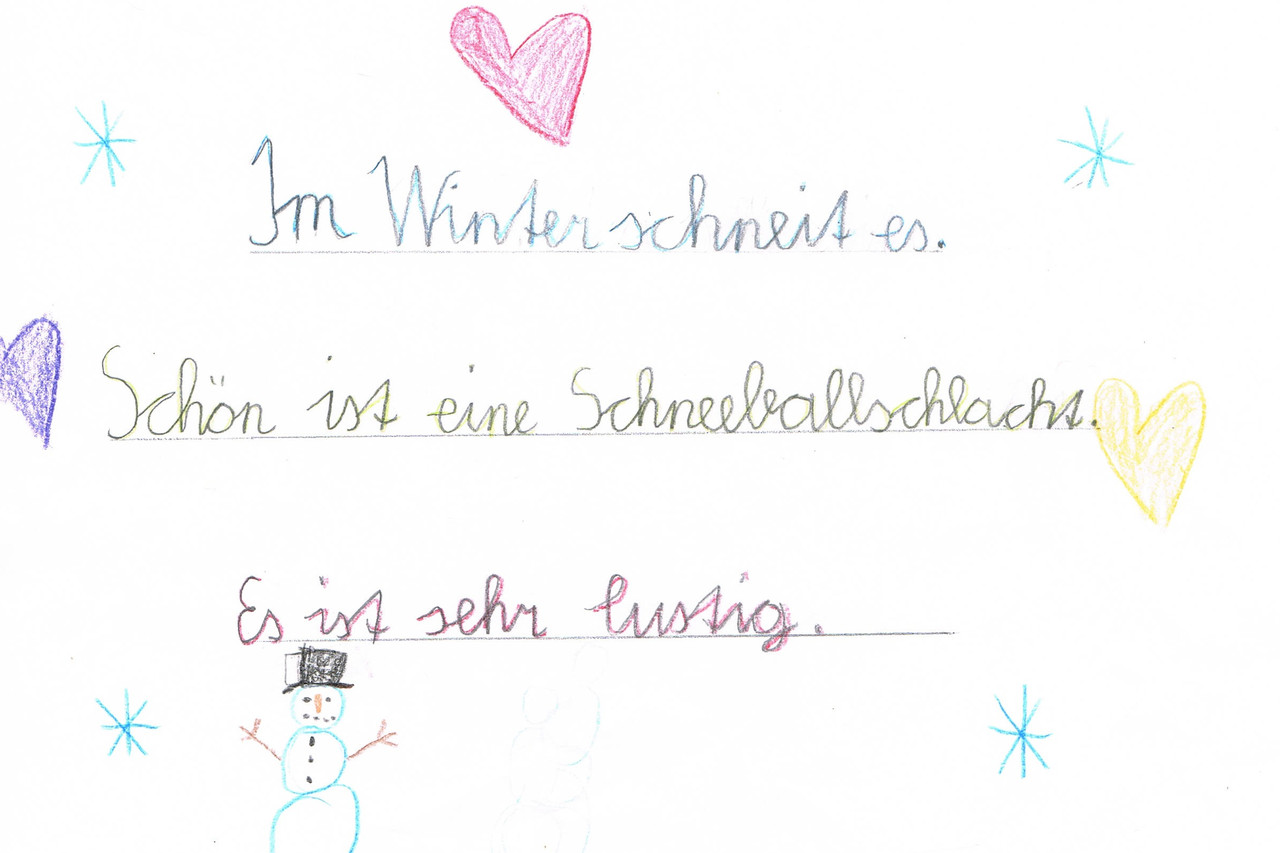 Im Winter schneit es.
Schön ist eine Schneeballschlacht.
Es ist sehr lustig.